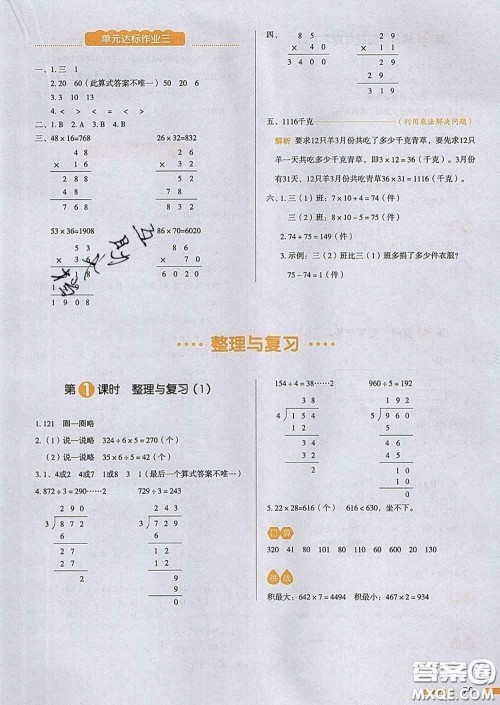 单元达标作业三
一、1. 三 1
2. 20 60（此算式答案不唯一） 50 20 6
3. 10 10 13
二、1. B 2. A 3. B
三、48×16=768 26×32=832
4 8
× 1 6
2 8 8
4 8
7 6 8
2 6
× 3 2
5 2
7 8
8 3 2
53×36=1908 86×70=6020
5 3
3 1 8
1 9 0 8
8 6
× 7 0
6 0 2 0
四、
× 4 0
3 1 2 0
× 3 1
2 9
8 7
8 9 9
五、1116千克 （利用乘法解决问题）
解析 要求12只羊3月份共吃了多少千克青草，要先求12只
羊一天共吃多少千克青草，即3×12=36（千克）。3月份
有31天，12只羊3月份共吃青草36×31=1116（千克）。
六、1. 三（1）班：7×10+4=74（件）
三（2）班：8×10-5=75（件）
2. 74+75=149（件）
3. 示例：三（2）班比三（1）班多捐了多少件衣服？
75-74=1（件）
整理与复习
第1课时 整理与复习（1）
1. 121 圈一圈略
2.（1）说一说略 324÷6×5=270（个）
（2）说一说略 35×6÷5=42（个）
3. 1、4或2 4或7 1或8 3 1（最后一个算式答案不唯一）
4. 872÷3=290……2 729÷3=243
2 9 0
3 8 7 2
6
2 7
2 7
2
2 4 3
3 7 2 9
6
1 2
1 2
9
9
0
154÷4=38……2 960÷5=192
3 8
4 1 5 4
1 2
3 4
3 2
2
1 9 2
5 9 6 0
5
4 6
4 5
1 0
1 0
0
5. 22×28=616（个） 616<630，坐不下。
口算
320 41 80 101 130 80 60 600 20 130
挑战
积最大：642×7=4494 积最小：467×2=934
答案圈
MXQE.COM